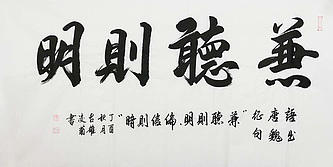 兼聽則明
語出
唐魏
征句
“兼聽則明,偏信則暗”
丁酉
秋月
書